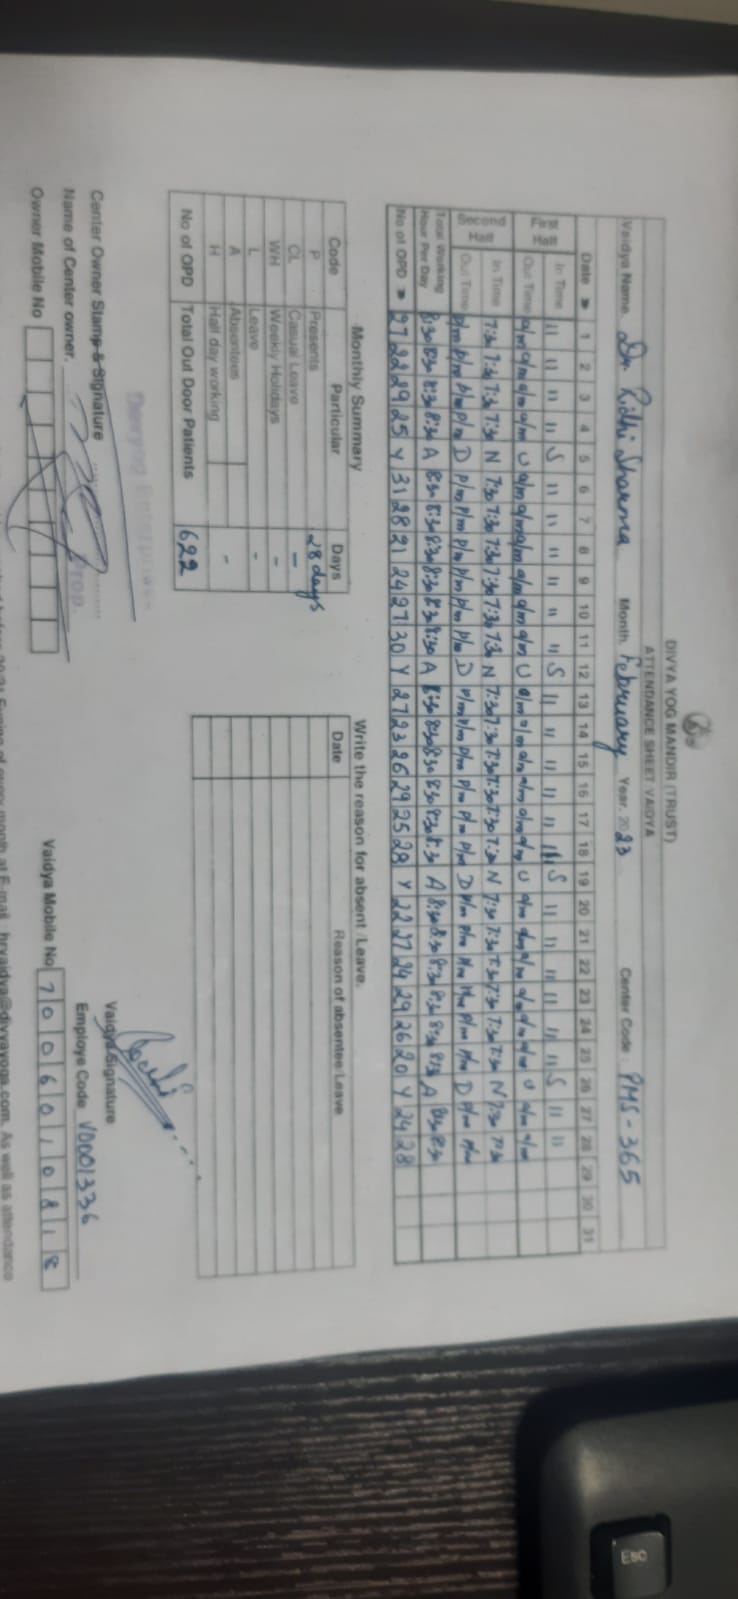 DIVYA YOG MANDIR (TRUST)
ATTENDANCE SHEET VAIDYA
Vaidya Name. Dr. Ridhi Sharma Month. February Year. 2023 Center Code : PMS-365
Date 1 2 3 4 5 6 7 8 9 10 11 12 13 14 15 16 17 18 19 20 21 22 23 24 25 26 27 28 29 30 31
First Half In Time 11 11 11 11 S 11 11 11 11 11 11 S 11 11 11 11 11 11 S 11 11 11 11 11 11 S 11 11
Out Time a/m a/m a/m a/m U a/m a/m a/m a/m a/m a/m U a/m a/m a/m a/m a/m a/m U a/m a/m a/m a/m a/m a/m U a/m a/m
Second Half In Time 7:30 7:30 7:30 7:30 N 7:30 7:30 7:30 7:30 7:30 7:30 N 7:30 7:30 7:30 7:30 7:30 7:30 N 7:30 7:30 7:30 7:30 7:30 7:30 N 7:30 7:30
Out Time P/m P/m P/m P/m D P/m P/m P/m P/m P/m P/m D P/m P/m P/m P/m P/m P/m D P/m P/m P/m P/m P/m P/m D P/m P/m
Total Working Hour Per Day 8:30 8:30 8:30 8:30 A 8:30 8:30 8:30 8:30 8:30 8:30 A 8:30 8:30 8:30 8:30 8:30 8:30 A 8:30 8:30 8:30 8:30 8:30 8:30 A 8:30 8:30
No of OPD 27 22 29 25 Y 31 28 21 24 27 30 Y 27 23 26 29 25 28 Y 22 27 24 29 26 20 Y 24 28
Monthly Summary
Code Particular Days
P Presents 28 days
CL Casual Leave -
WH Weekly Holidays -
L Leave -
A Absentees -
H Half day working
No of OPD Total Out Door Patients 622
Write the reason for absent /Leave.
Date Reason of absentee/Leave
Divyog Enterprises
Center Owner Stamp & Signature
Prop.
Name of Center owner.
Owner Mobile No
Vaidya Signature
Employe Code V0001336
Vaidya Mobile No 7006010818
of every month at E-mail : hrvaidya@divyayoga.com. As well as attendance